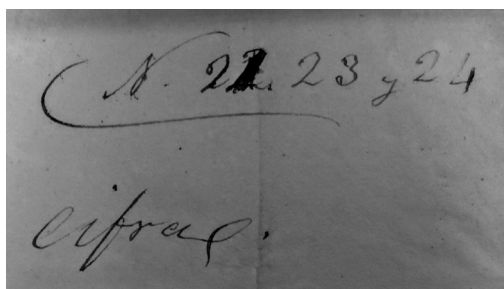 N. 22. 23 y 24
cifras.